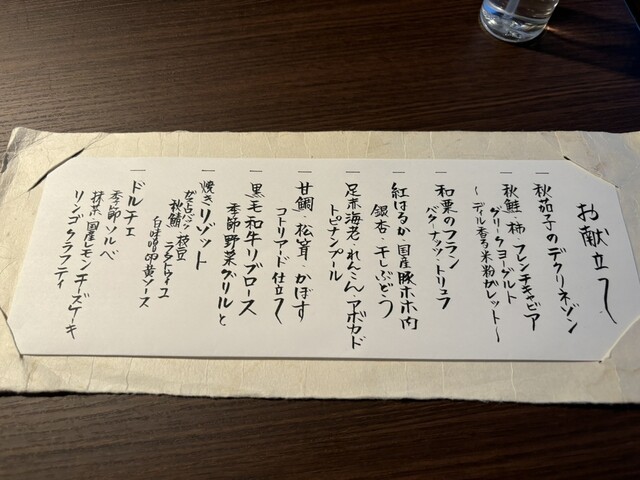 お献立て
一 秋茄子のデクリネゾン
一 秋鮭・柿・フレンチキャビア
グリークヨーグルト
～ディル香る米粉ガレット～
一 和栗のフラン
バターナッツ・トリュフ
一 紅はるか・国産豚ホホ肉
銀杏・干しぶどう
一 足赤海老・れんこん・アボカド
トピナンブール
一 甘鯛・松茸・かぼす
コトリアード仕立て
一 黒毛和牛リブロース
季節野菜グリルと
一 焼きリゾット
枝豆
秋鯖 ラタトゥイユ
白味噌卵黄ソース
一 ドルチェ
季節ソルベ
抹茶・国産レモンチーズケーキ
リンゴクラフティ